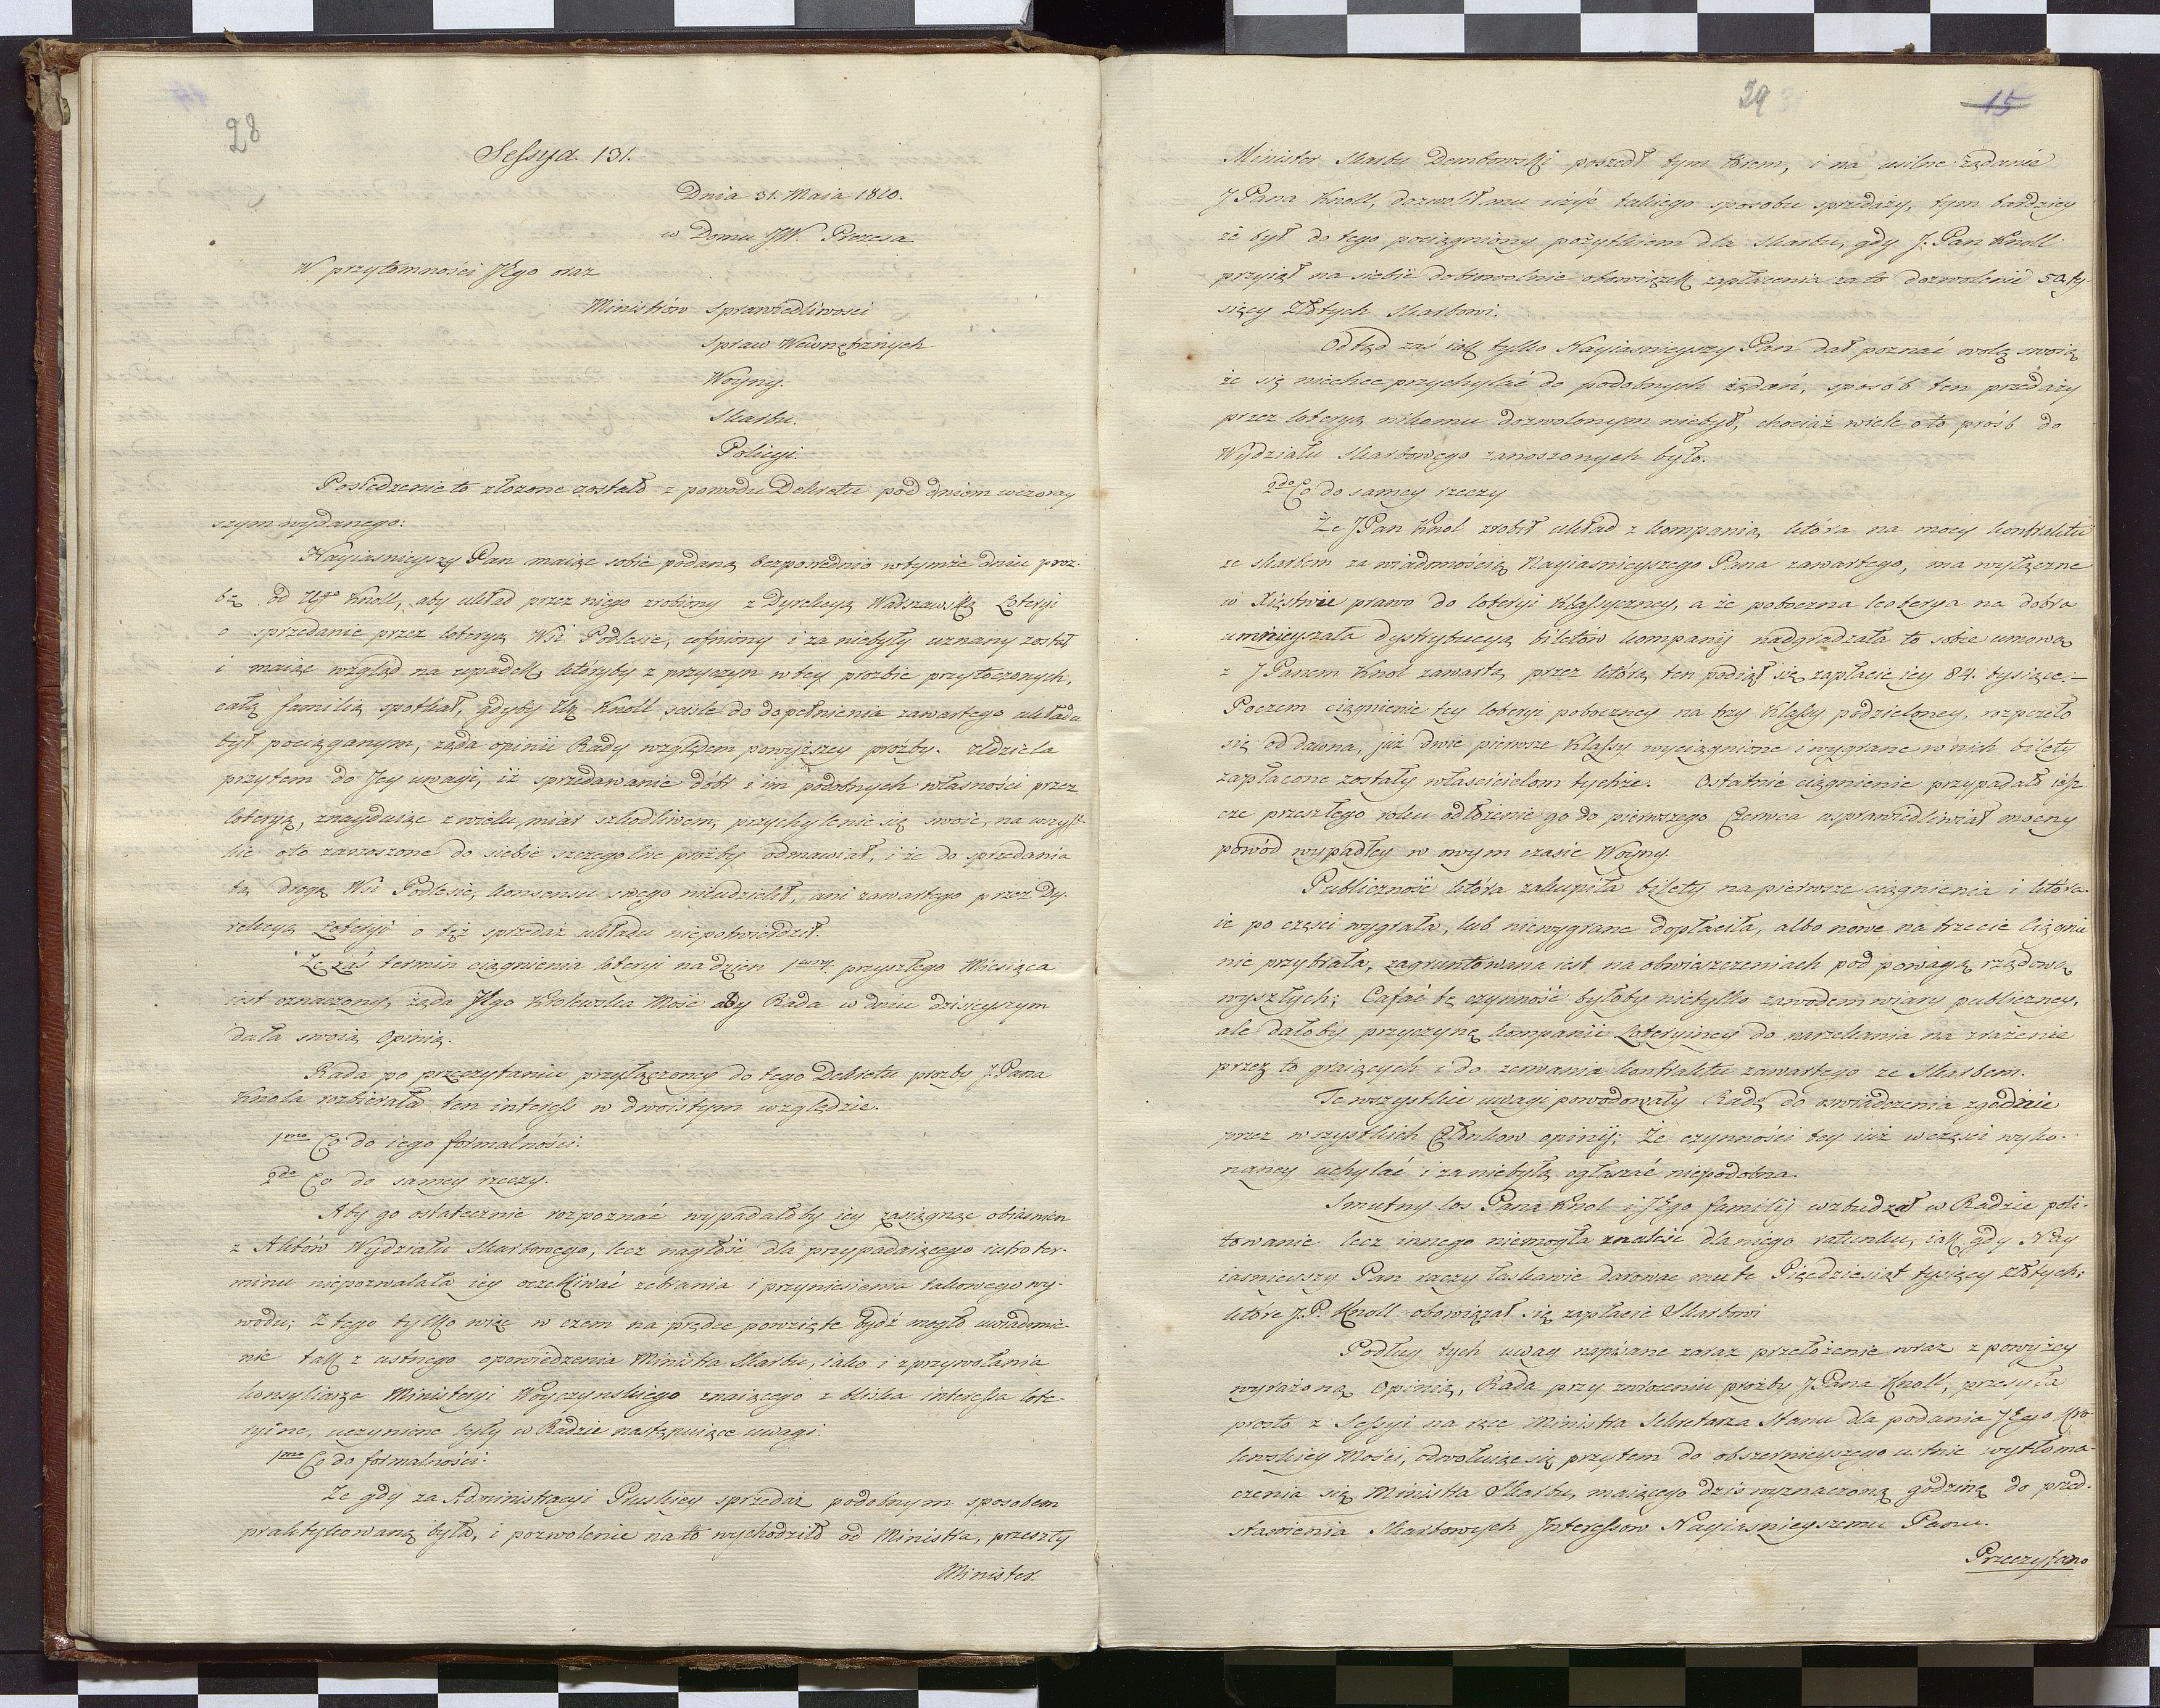 28
Sessya 131.
Dnia 31. Maia 1810.
w Domu JW. Prezesa
W przytomności JEgo oraz
Ministrów Sprawiedliwosci
Spraw Wewnętrznych
Woyny.
Skarbu.
Policyi.
Posiedzenie to złożone zostało z powodu Dekretu pod dniem wczoray
szym wydanego:
Nayiasnieyszy Pan maiąc sobie podaną bezpośrednio w tymże dniu proz-
bę od Ugo Knoll, aby układ przez niego zrobiony z Dyrekcyą Warszawską Loteryi
o sprzedanie przez loteryą Wsi Podlesie, cofniony i za niebyły uznany został
i maiąc wzgląd na upadek któryby z przyczyn w tey prozbie przytoczonych,
całą familią spotkał, gdyby Ur Knoll scisle do dopełnienia zawartego układu
był pociąganym, żąda opinii Rady względem powyższey prozby. Udziela
przytem do Jey uwagi, iż sprzedawanie dóbr i im podobnych własności przez
loteryą, znayduiąc z wielu miar szkodliwem, przychylenie się swoie, na wszyst-
kie o to zanoszone do siebie szczegolne prozby odmawiał, i że do sprzedania
tą drogą Wsi Podlesie, konsensu swego nieudzielił, ani zawartego przez Dy-
rekcyą Loteryi o też sprzedaż układu niepotwierdził.
Że zaś termin ciągnienia loteryi na dzien 1wszy przyszłego Miesiąca
iest oznaczony, żąda JEgo Krolewska Mość aby Rada w dniu dzisieyszym
dała swoią Opinią.
Rada po przeczytaniu przyłączoney do tego Dekretu prozby J. Pana
Knola rozbierała ten interess w dwoistym względzie.
1mo Co do iego formalności.
2do Co do samey rzeczy.
Aby go ostatecznie rozpoznać wypadałoby iey zasiągnąć obiasnien
z Aktów Wydziału Skarbowego, lecz nagłość dla przypadaiącego iutro ter-
minu niepozwalała iey oczekiwać zebrania i przyniesienia takowego wy-
wodu; Z tego tylko więc w czem na prędce powzięte bydź mogło uwiadomie-
nie tak z ustnego opowiedzenia Ministra Skarbu, iako i z przywołania
konsyliarza Ministeryi Woyczynskiego znaiącego z bliska interessa lote-
ryine, uczynione były w Radzie następuiące uwagi:
1mo Co do formalności:
Że gdy za Administracyi Pruskiey sprzedaż podobnym sposobem
praktykowaną była, i pozwolenie na to wychodziło od Ministra, przeszły
Minister.
29
15
Minister Skarbu Dembowski poszedł tym torem, i na usilne żądanie
J Pana Knoll, dozwolił mu użyć takiego sposobu sprzedaży, tym bardziey
że był do tego pociągniony pożytkiem dla Skarbu, gdy J. Pan Knoll
przyiął na siebie dobrowolnie obowiązek zapłacenia za to dozwolenie 50. ty-
sięcy Złotych Skarbowi.
Odtąd zaś iak tylko Nayiasnieyszy Pan dał poznać wolą swoią
że się niechce przychylać do podobnych żądań, sposób ten przedaży
przez loteryą nikomu dozwolonym niebył, chociaż wiele o to prośb do
Wydziału Skarbowego zanoszonych było.
2do Co do samey rzeczy
Że JPan Knol zrobił układ z kompanią, która na mocy kontraktu
ze skarbem za wiadomością Nayiasnieyszego Pana zawartego, ma wyłączne
w Xięstwie prawo do loteryi Klassyczney, a że poboczna loterya na dobra
umnieyszała dystrybucyą biletów kompanij nadgradzała to sobie umową
z J Panem Knol zawartą przez którą ten podiął się zapłacic iey 84. tysiące.-
Poczem ciągnienie tey loteryi poboczney na trzy Klassy podzieloney, rozpczęło
się od dawna, już dwie pierwsze Klassy wyciągnione i wygrane w nich bilety
zapłacone zostały właścicielom tychże. Ostatnie ciągnienie przypadało iesz
cze przeszłego roku odłożenie go do pierwszego Czerwca usprawiedliwiał mocny
powód wypadłey w owym czasie Woyny.
Publiczność która zakupiła bilety na pierwsze ciągnienia i która-
ie po części wygrała, lub niewygrane dopłaciła, albo nowe na trzecie Ciągnie
nie przybrała, zagruntowana iest na obwieszczeniach pod powagą rządową
wyszłych; Cofać tę czynność byłoby nietylko zawodem wiary publiczney,
ale dałoby przyczynę kompanii Loteryiney do narzekania na zrażenie
przez to graiących i do zerwania kontraktu zawartego ze Skarbem.
Te wszystkie uwagi powodowały Radę do oswiadczenia zgodnie
przez wszystkich Członkow opinij; Że czynności tey iuż w części wyko-
naney uchylać i za niebyłą ogłaszać niepodobna.
Smutny los Pana Knol i JEgo familij wzbudzał w Radzie poli-
towanie lecz innego niemogła znaleść dla niego ratunku, iak gdy Nay
iasnieyszy Pan raczy łaskawie darować mu te Pięcdziesiąt tysięcy złotych;
które J.P. Knoll obowiązał się zapłacić Skarbowi
Podług tych uwag napisane zaraz przełożenie wraz z powyżey
wyrażoną Opinią, Rada przy zwroceniu prożby J Pana Knoll, przesyła
prosto z Sessyi na ręce Ministra Sekretarza Stanu dla podania JEgo Kro-
lewskiey Mości, odwołuiąc się przytem do obszernieyszego ustnie wytłoma-
czenia się Ministra Skarbu, maiącego dziś wyznaczoną godzinę do przed-
stawienia Skarbowych Interessow Nayiasnieyszemu Panu.
Przeczytano